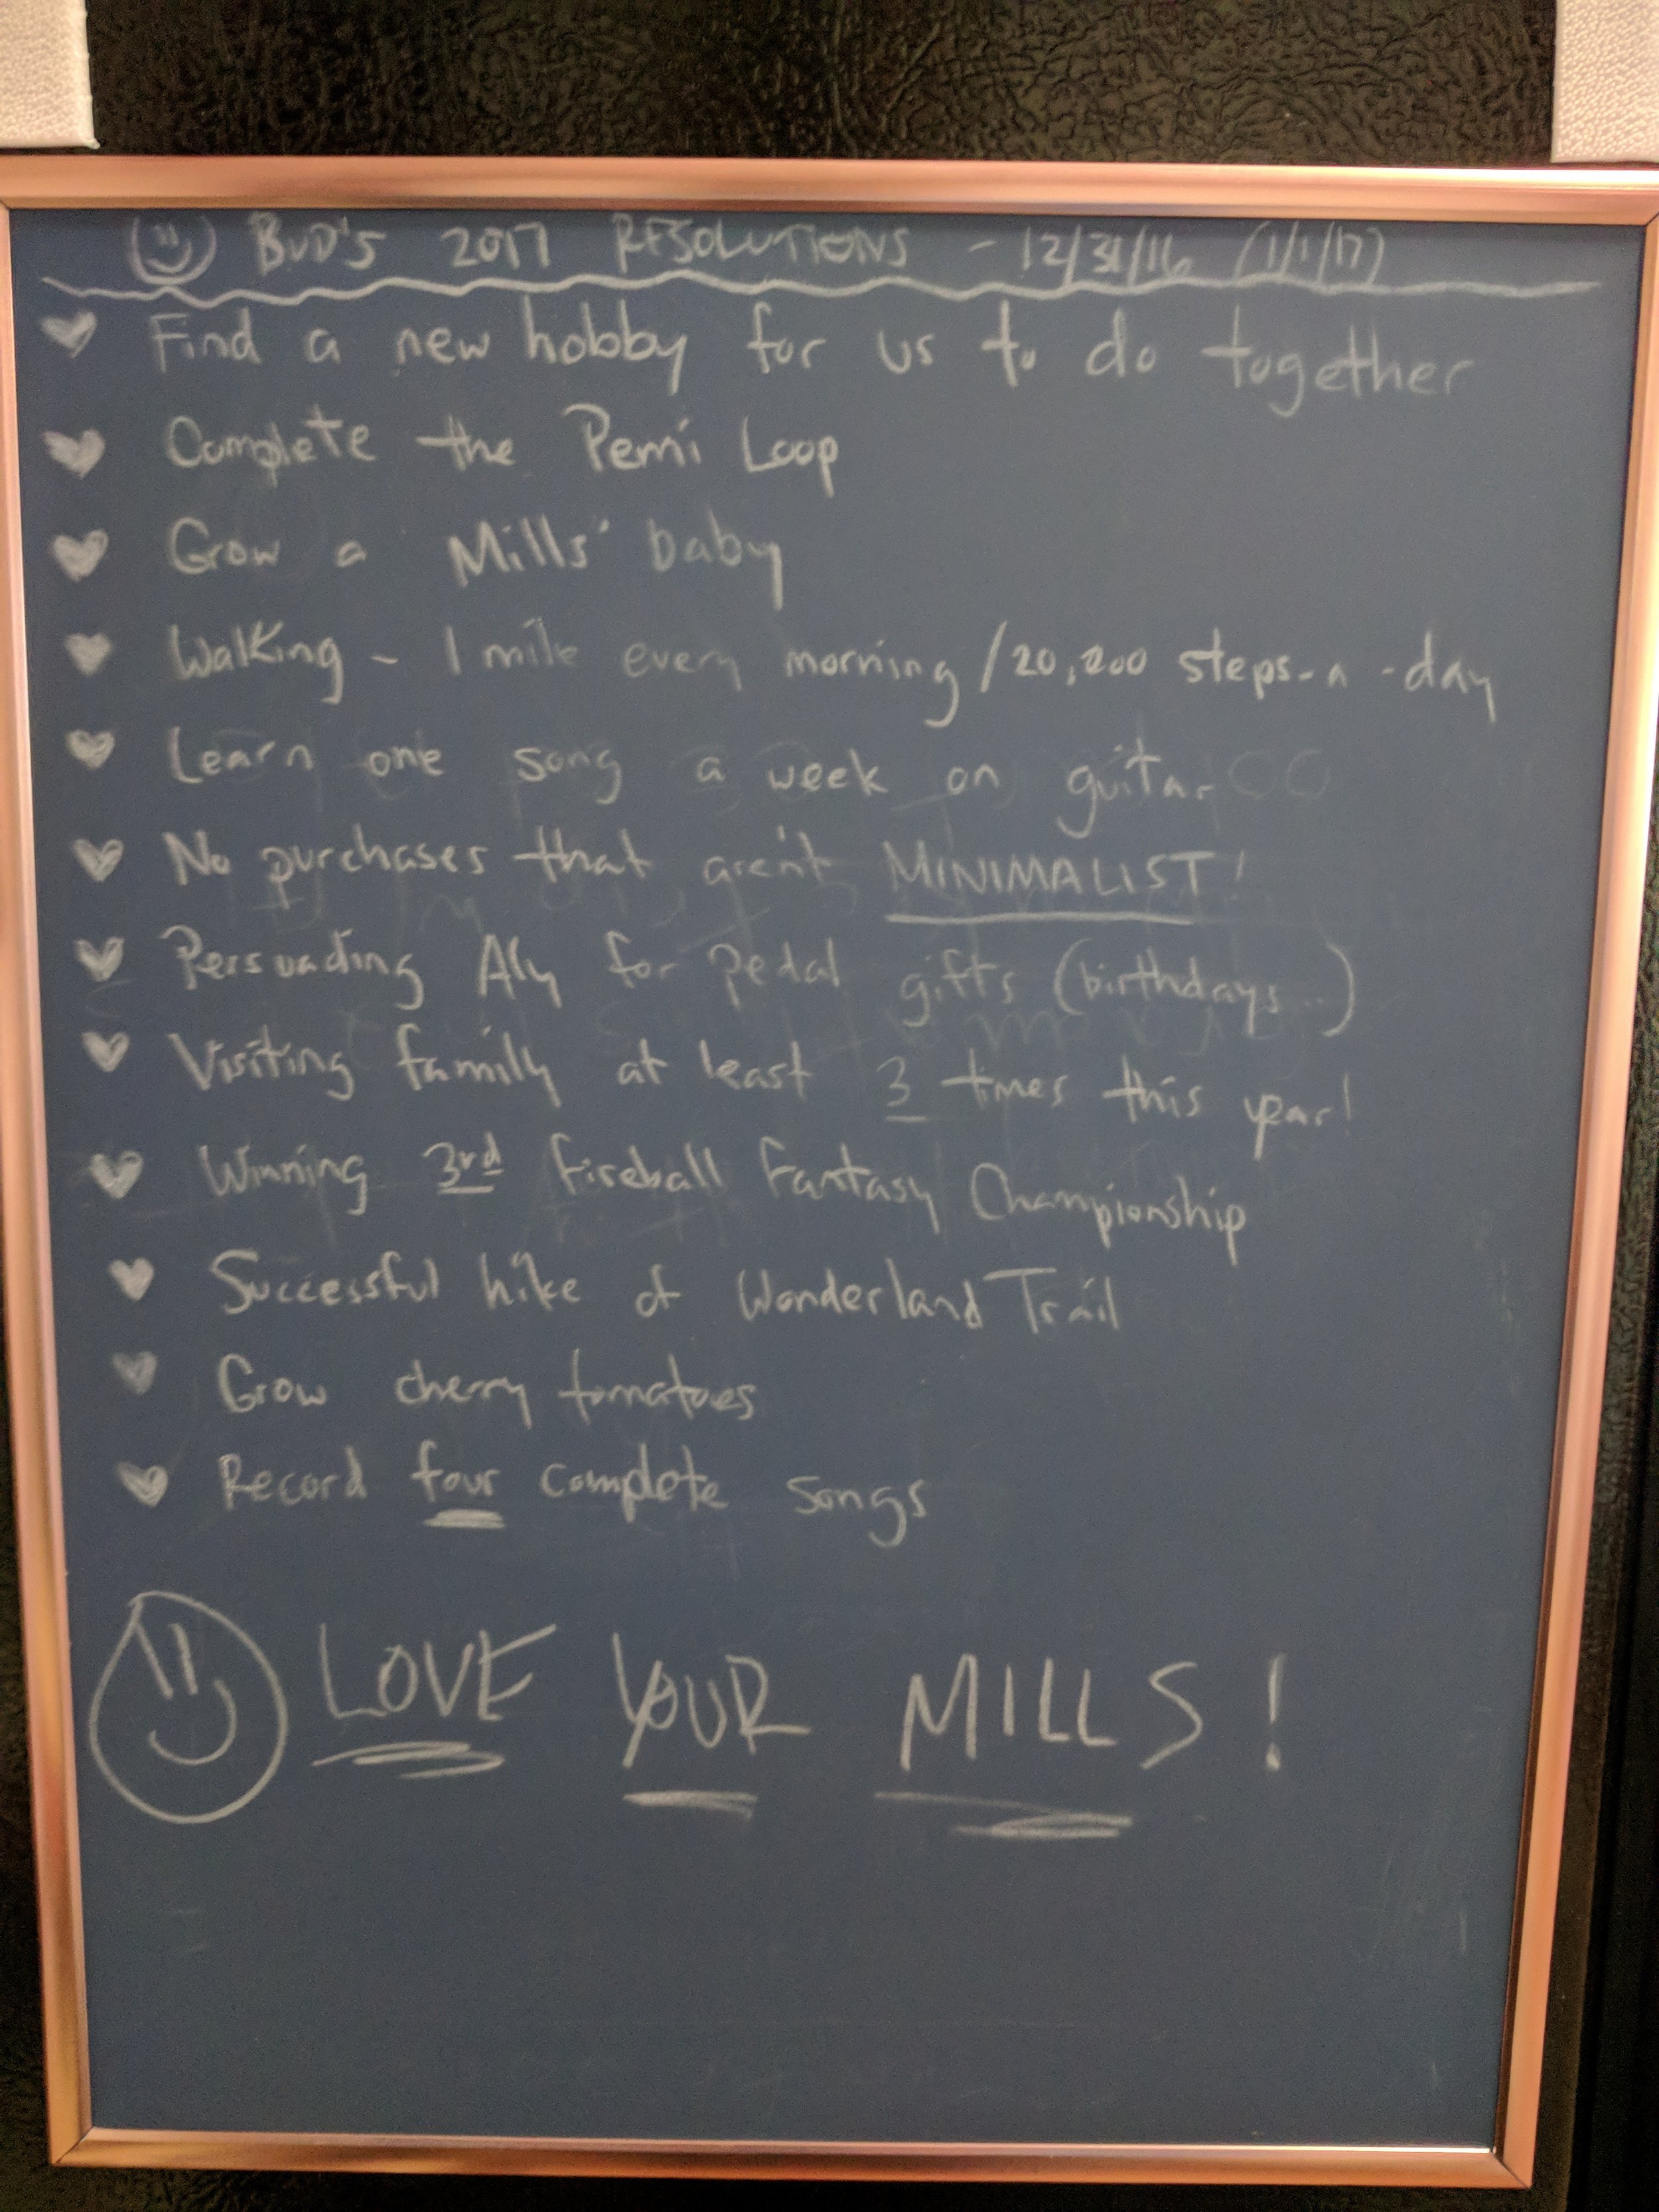 BUD'S 2017 RESOLUTIONS - 12/31/16 (1/1/17)
Find a new hobby for us to do together
Complete the Pemi Loop
Grow a Mills' baby
Walking - 1 mile every morning / 20,200 steps-a-day
Learn one song a week on guitar
No purchases that aren't MINIMALIST!
Persuading Aly for pedal gifts (birthdays...)
Visiting family at least 3 times this year!
Winning 3rd Fireball Fantasy Championship
Successful hike of Wonderland Trail
Grow cherry tomatoes
Record four complete songs
LOVE YOUR MILLS!